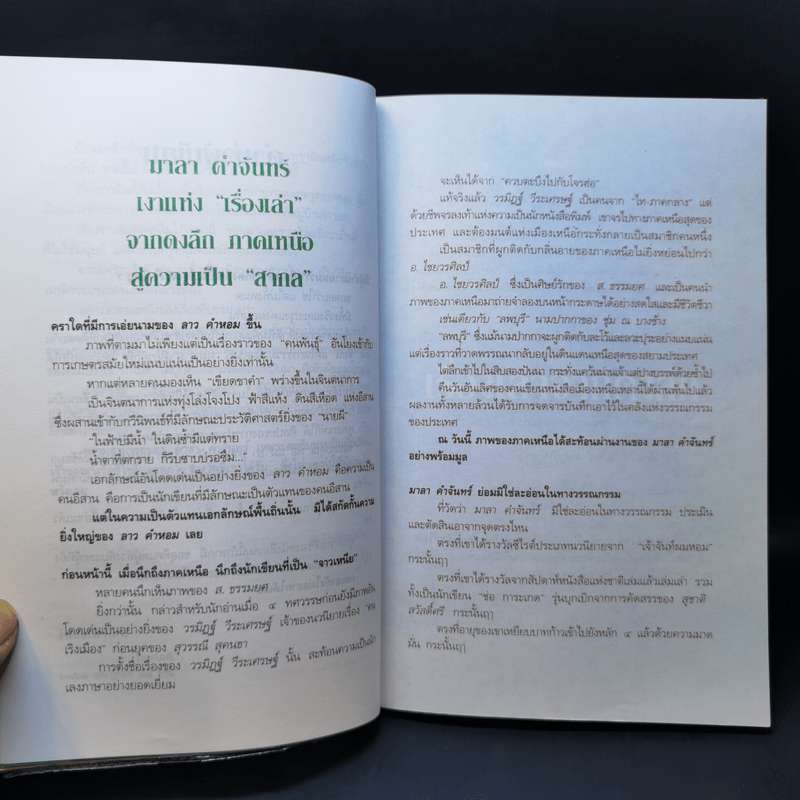 มาลา คำจันทร์
เงาแห่ง “เรื่องเล่า”
จากดงลึก ภาคเหนือ
สู่ความเป็น “สากล”
คราใดที่มีการเอ่ยนามของ ลาว คำหอม ขึ้น
ภาพที่ตามมาไม่เพียงแต่เป็นเรื่องราวของ “คนพันธุ์” อันโยงเข้ากับ
การเกษตรสมัยใหม่แนบแน่นเป็นอย่างยิ่งเท่านั้น
หากแต่หลายคนมองเห็น “เขียดขาคำ” พร่างขึ้นในจินตนาการ
เป็นจินตนาการแห่งทุ่งโล่งโจงโปง ฟ้าสีแห้ง ดินสีเหือด แห่งอีสาน
ซึ่งผสานเข้ากับกวีนิพนธ์ที่มีลักษณะประวัติศาสตร์ยิ่งของ “นายผี”
“ในฟ้าบ่มีน้ำ ในดินซ้ำมีแต่ทราย
น้ำตาที่ตกราย ก็รีบซาบบ่รอซึม...”
เอกลักษณ์อันโดดเด่นเป็นอย่างยิ่งของ ลาว คำหอม คือความเป็น
คนอีสาน คือการเป็นนักเขียนที่มีลักษณะเป็นตัวแทนของคนอีสาน
แต่ในความเป็นตัวแทนเอกลักษณ์พื้นถิ่นนั้น มิได้สกัดกั้นความ
ยิ่งใหญ่ของ ลาว คำหอม เลย
ก่อนหน้านี้ เมื่อนึกถึงภาคเหนือ นึกถึงนักเขียนที่เป็น “จาวเหนือ”
หลายคนนึกเห็นภาพของ ส. ธรรมยศ
ยิ่งกว่านั้น กล่าวสำหรับนักอ่านเมื่อ ๔ ทศวรรษก่อนยังมีภาพอัน
โดดเด่นเป็นอย่างยิ่งของ วรมิฏฐ์ วีระเศรษฐ์ เจ้าของนวนิยายเรื่อง “คน
เริงเมือง” ก่อนยุคของ สุวรรณี สุคนธา
การตั้งชื่อเรื่องของ วรมิฏฐ์ วีระเศรษฐ์ นั้น สะท้อนความเป็นนัก
เลงภาษาอย่างยอดเยี่ยม
จะเห็นได้จาก “ควบตะบึงไปกับโจรฮ่อ”
แท้จริงแล้ว วรมิฏฐ์ วีระเศรษฐ์ เป็นคนจาก “ไท-ภาคกลาง” แต่
ด้วยชีพจรลงเท้าแห่งความเป็นนักหนังสือพิมพ์ เขาจรไปทางภาคเหนือสุดของ
ประเทศ และต้องมนต์แห่งเมืองเหนือกระทั่งกลายเป็นสมาชิกคนหนึ่ง
เป็นสมาชิกที่ผูกติดกับกลิ่นอายของภาคเหนือไม่ยิ่งหย่อนไปกว่า
อ. ไชยวรศิลป์
อ. ไชยวรศิลป์ ซึ่งเป็นศิษย์รักของ ส. ธรรมยศ และเป็นคนนำ
ภาพของภาคเหนือมาถ่ายจำลองบนหน้ากระดาษได้อย่างสดใสและมีชีวิตชีวา
เช่นเดียวกับ “ลพบุรี” นามปากกาของ ชุ่ม ณ บางช้าง
“ลพบุรี” ซึ่งแม้นามปากกาจะผูกติดกับละโว้และลวะปุระอย่างแนบแน่น
แต่เรื่องราวที่วาดพรรณนากลับอยู่ในดินแดนเหนือสุดของสยามประเทศ
ได้ลึกเข้าไปในสิบสองปันนา กระทั่งแคว้นน่านเจ้าแต่ปางบรรพ์ด้วยซ้ำไป
คืนวันอันเลิศของคนเขียนหนังสือเมืองเหนือเหล่านี้ได้ผ่านพ้นไปแล้ว
ผลงานทั้งหลายล้วนได้รับการจดจารบันทึกเอาไว้ในคลังแห่งวรรณกรรม
ของประเทศ
ณ วันนี้ ภาพของภาคเหนือได้สะท้อนผ่านงานของ มาลา คำจันทร์
อย่างพร้อมมูล
มาลา คำจันทร์ ย่อมมิใช่ละอ่อนในทางวรรณกรรม
ที่ว่าว่า มาลา คำจันทร์ มิใช่ละอ่อนในทางวรรณกรรม ประเมิน
และตัดสินเอาจากจุดตรงไหน
ตรงที่เขาได้รางวัลซีไรต์ประเภทนวนิยายจาก “เจ้าจันท์ผมหอม”
กระนั้นฤๅ
ตรงที่เขาได้รางวัลจากสัปดาห์หนังสือแห่งชาติเล่มแล้วเล่มเล่า รวม
ทั้งเป็นนักเขียน “ช่อ การะเกด” รุ่นบุกเบิกจากการคัดสรรของ สุชาติ
สวัสดิ์ศรี กระนั้นฤๅ
ตรงที่อายุของเขาเหยียบบาทก้าวเข้าไปยังหลัก ๔ แล้วด้วยความมาด
มั่น กระนั้นฤๅ